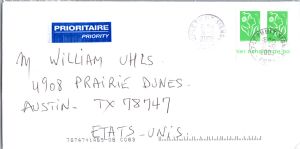 PRIORITAIRE
PRIORITY
M WILLIAM UHLS
4908 PRAIRIE DUNES
AUSTIN - TX 78747
ETATS-UNIS.